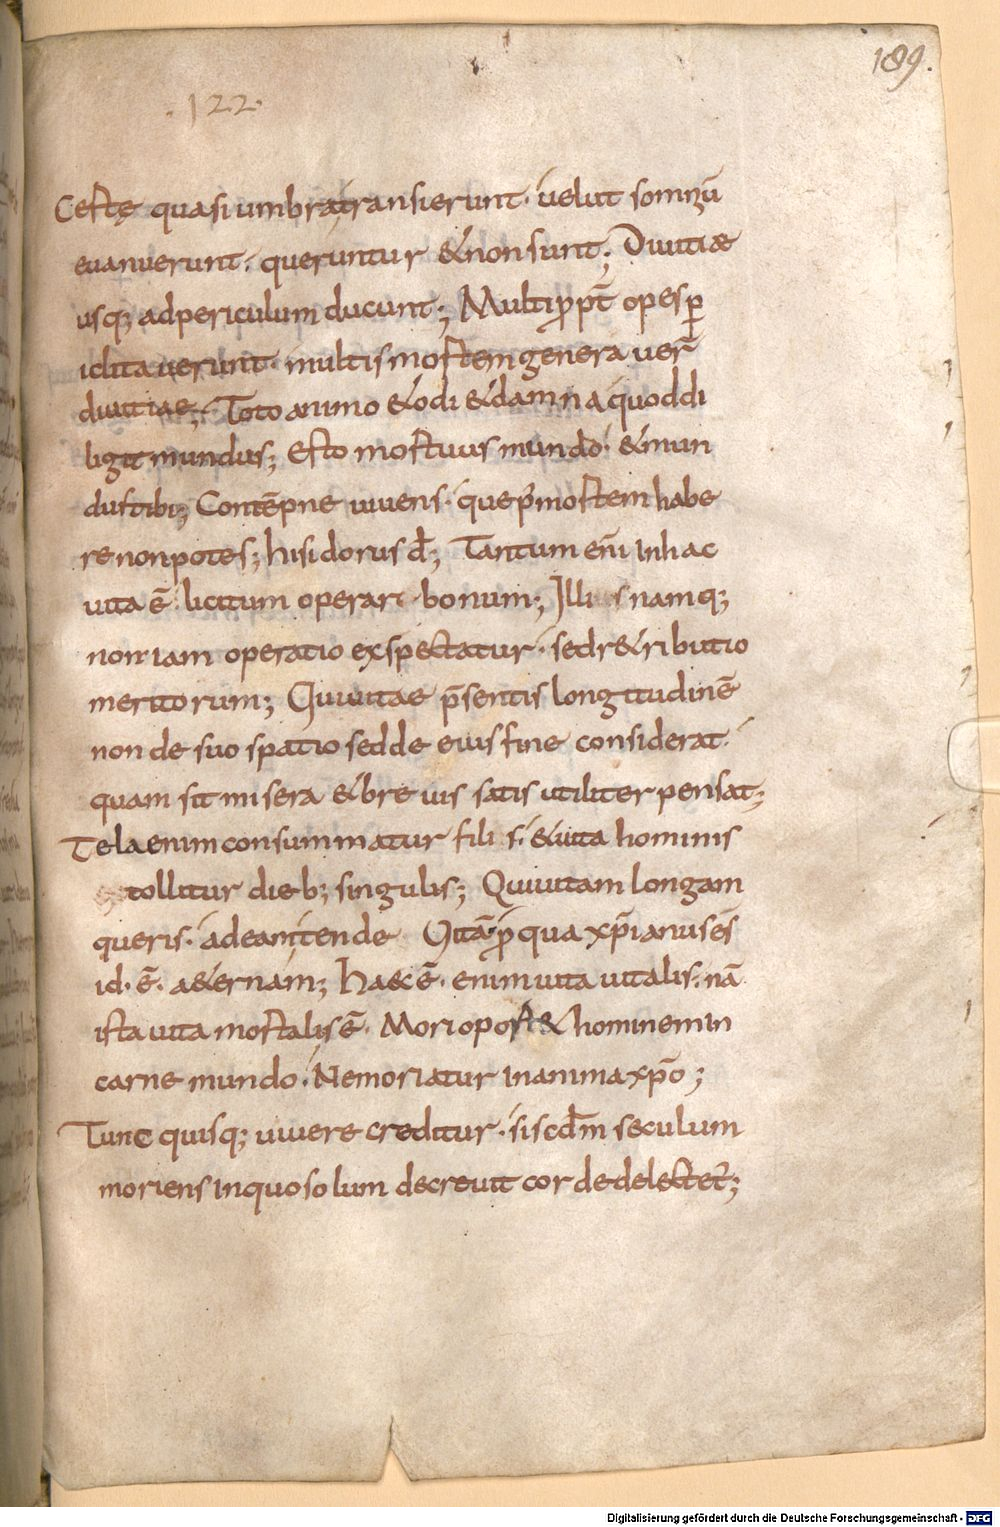 189.
122.
Certę quasi umbra transierunt· uelut somniū
euanuerunt· queruntur & non sunt; Diuitiae
usq; ad periculum ducunt; Multi ꝓpt̄ opes ꝑ
iclitauerunt· multis mortem generauer̄
diuitiae; Toto animo & odi & damna quod di
ligit mundus; Esto mortuus mundo· & mun
dus tibi; Contēpne uiuens· que p̄ mortem habe
re non potes; hisidorus đ; Tantum enī in hac
uita ē licitum operari bonum; Illi namq;
non iam operatio exspectatur· sed r&ributio
meritorum; Qui uitae p̄sentis longitudinē
non de suo spatio sed de eius fine considerat·
quam sit misera & breuis satis utiliter pensat;
Tela enim consummatur filis· & uita hominis
tollitur dieb; singulis; Qui uitam longam
queris· ad eam tende Uitā ꝓ qua xp̄ianus es
id· ē· a&ernam; Haec ē· enim uita uitalis· nā
ista uita mortalis ē· Mori oport& hominem in
carne mundo· Ne moriatur in anima xp̄o;
Tunc quisq; uiuere creditur· si scđm seculum
moriens in quo solum decreuit corde delectet̄;
Digitalisierung gefördert durch die Deutsche Forschungsgemeinschaft - DFG